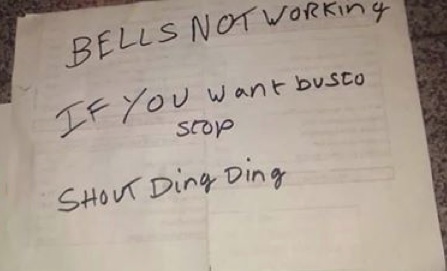 BELLS NOT WORKing
IF YOU want busto
stop
SHOUT Ding Ding